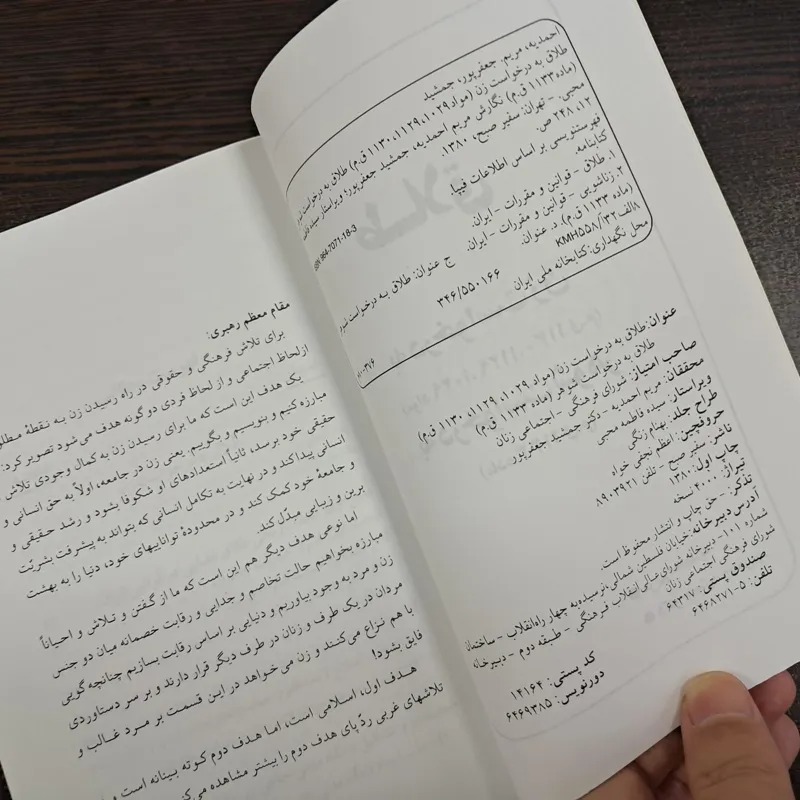 احمدیه، مریم. جعفرپور، جمشید
طلاق به درخواست زن (مواد ۱۰۲۹، ۱۱۲۹، ۱۱۳۰ ق.م) طلاق به درخواست
(ماده ۱۱۳۳ ق.م) نگارش مریم احمدیه، جمشید جعفرپور؛ ویراستار سیده فاطمه
محبی. - تهران: سفیر صبح، ۱۳۸۰.
۱۲، ۲۴۸ ص.
ISBN 964-7071-18-3
فهرستنویسی بر اساس اطلاعات فیپا
کتابنامه.
۱. طلاق - قوانین و مقررات - ایران.
۲. زناشویی - قوانین و مقررات - ایران. ج عنوان: طلاق به درخواست شوهر
(ماده ۱۱۳۳ ق.م). د. عنوان.
۸الف۳۲/آ/KMH۵۵۸ ۳۴۶/۵۵۰۱۶۶
محل نگهداری: کتابخانه ملی ایران
عنوان: طلاق به درخواست زن (مواد ۱۰۲۹، ۱۱۲۹، ۱۱۳۰ ق.م)
طلاق به درخواست شوهر (ماده ۱۱۳۳ ق.م)
صاحب امتیاز: شورای فرهنگی - اجتماعی زنان
محققان: مریم احمدیه - دکتر جمشید جعفرپور
ویراستار: سیده فاطمه محبی
طراح جلد: بهنام زنگی
حروفچین: اعظم نجفی خواه
ناشر: سفیر صبح - تلفن ۸۹۰۳۹۲۱
چاپ اول: ۱۳۸۰
تیراژ: ۴۰۰۰ نسخه
تذکر: - حق چاپ و انتشار محفوظ است.
آدرس دبیرخانه: خیابان فلسطین شمالی، نرسیده به چهار راه انقلاب - ساختمان
شماره ۱۰۱ - دبیرخانه شورای عالی انقلاب فرهنگی - طبقه دوم - دبیرخانه
شورای فرهنگی اجتماعی زنان
صندوق پستی: ۶۴۳۱۷
تلفن: ۵-۶۴۶۸۲۷۱
کد پستی: ۱۴۱۶۴
دورنویس: ۶۴۶۹۳۸۵
مقام معظم رهبری:
برای تلاش فرهنگی و حقوقی در راه رسیدن زن به نقطهٔ
ازلحاظ اجتماعی و از لحاظ فردی دو گونه هدف می‌شود تصویر کرد:
یک هدف این است که ما برای رسیدن زن به کمال وجودی تلاش
مبارزه کنیم و بنویسیم و بگوییم. یعنی زن در جامعه، اولاً به حق انسانی و
حقیقی خود برسد، ثانیاً استعدادهای او شکوفا بشود و رشد حقیقی و
انسانی پیدا کند و در نهایت به تکامل انسانی که بتواند به پیشرفت بشریّت
و جامعهٔ خود کمک کند و در محدودهٔ تواناییهای خود، دنیا را به بهشت
برین و زیبایی مبدّل کند.
اما نوعی هدف دیگر هم این است که ما از گفتن و تلاش و احیاناً
مبارزه بخواهیم حالت تخاصم و جدایی و رقابت خصمانه میان دو جنس
زن و مرد به وجود بیاوریم و دنیایی بر اساس رقابت بسازیم چنانچه گویی
مردان در یک طرف و زنان در طرف دیگر قرار دارند و بر سر دستاوردی
با هم نزاع می‌کنند و زن می‌خواهد در این قسمت بر مرد غالب و
فایق بشود!
هدف اول، اسلامی است، اما هدف دوم کوته بینانه است و
تلاشهای غربی ردّ پای هدف دوم را بیشتر مشاهده